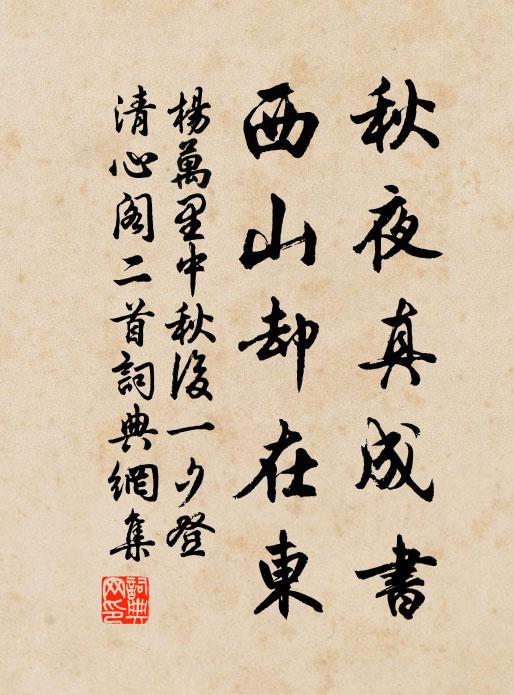 秋夜真成書
西山却在東
楊萬里中秋後一夕登
清心閣二首詞典網集
詞典網印